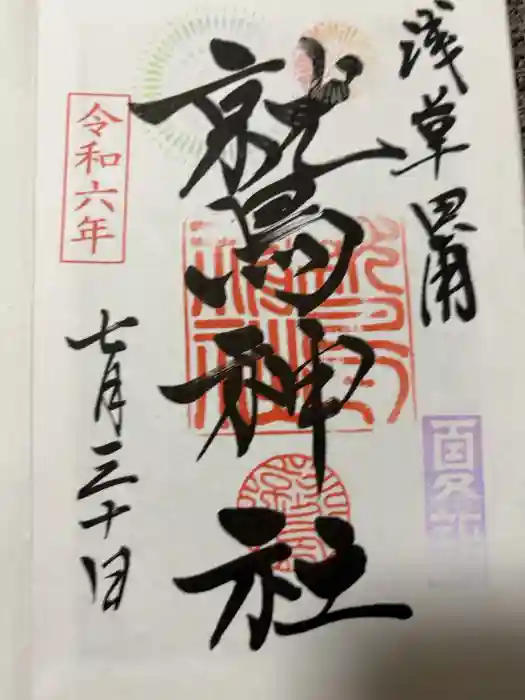 浅草田甫
鷲神社
令和六年
七月三十日